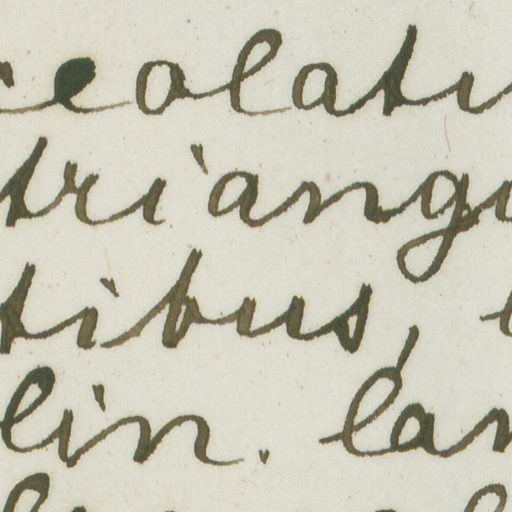 ceolati
triangu
tibus,
lin. lan